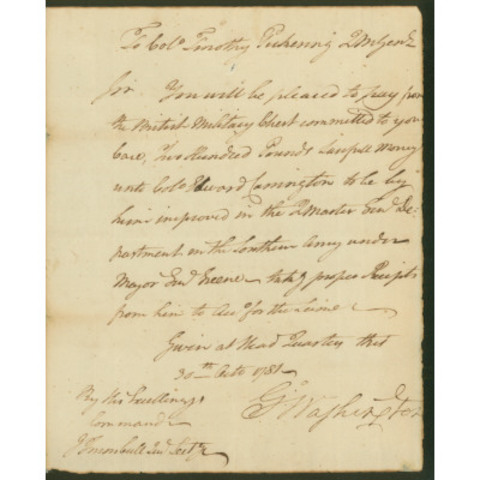 To Colo. Timothy Pickering QMGenl
Sir. You will be pleased to pay from
the British Military Chest committed to your
Care, Two Hundred Pounds Lawfull Money
unto Colo. Edward Carrington to be by
him improved in the QMaster Genl De-
partment in the Southern Army under
Mayor Genl Greene taking proper Receipts
from him to Acct for the same
Given at Head Quarters this
30th Octo 1781
Go: Washington
By His Excellency's
Command
J Trumbull Jun Secty